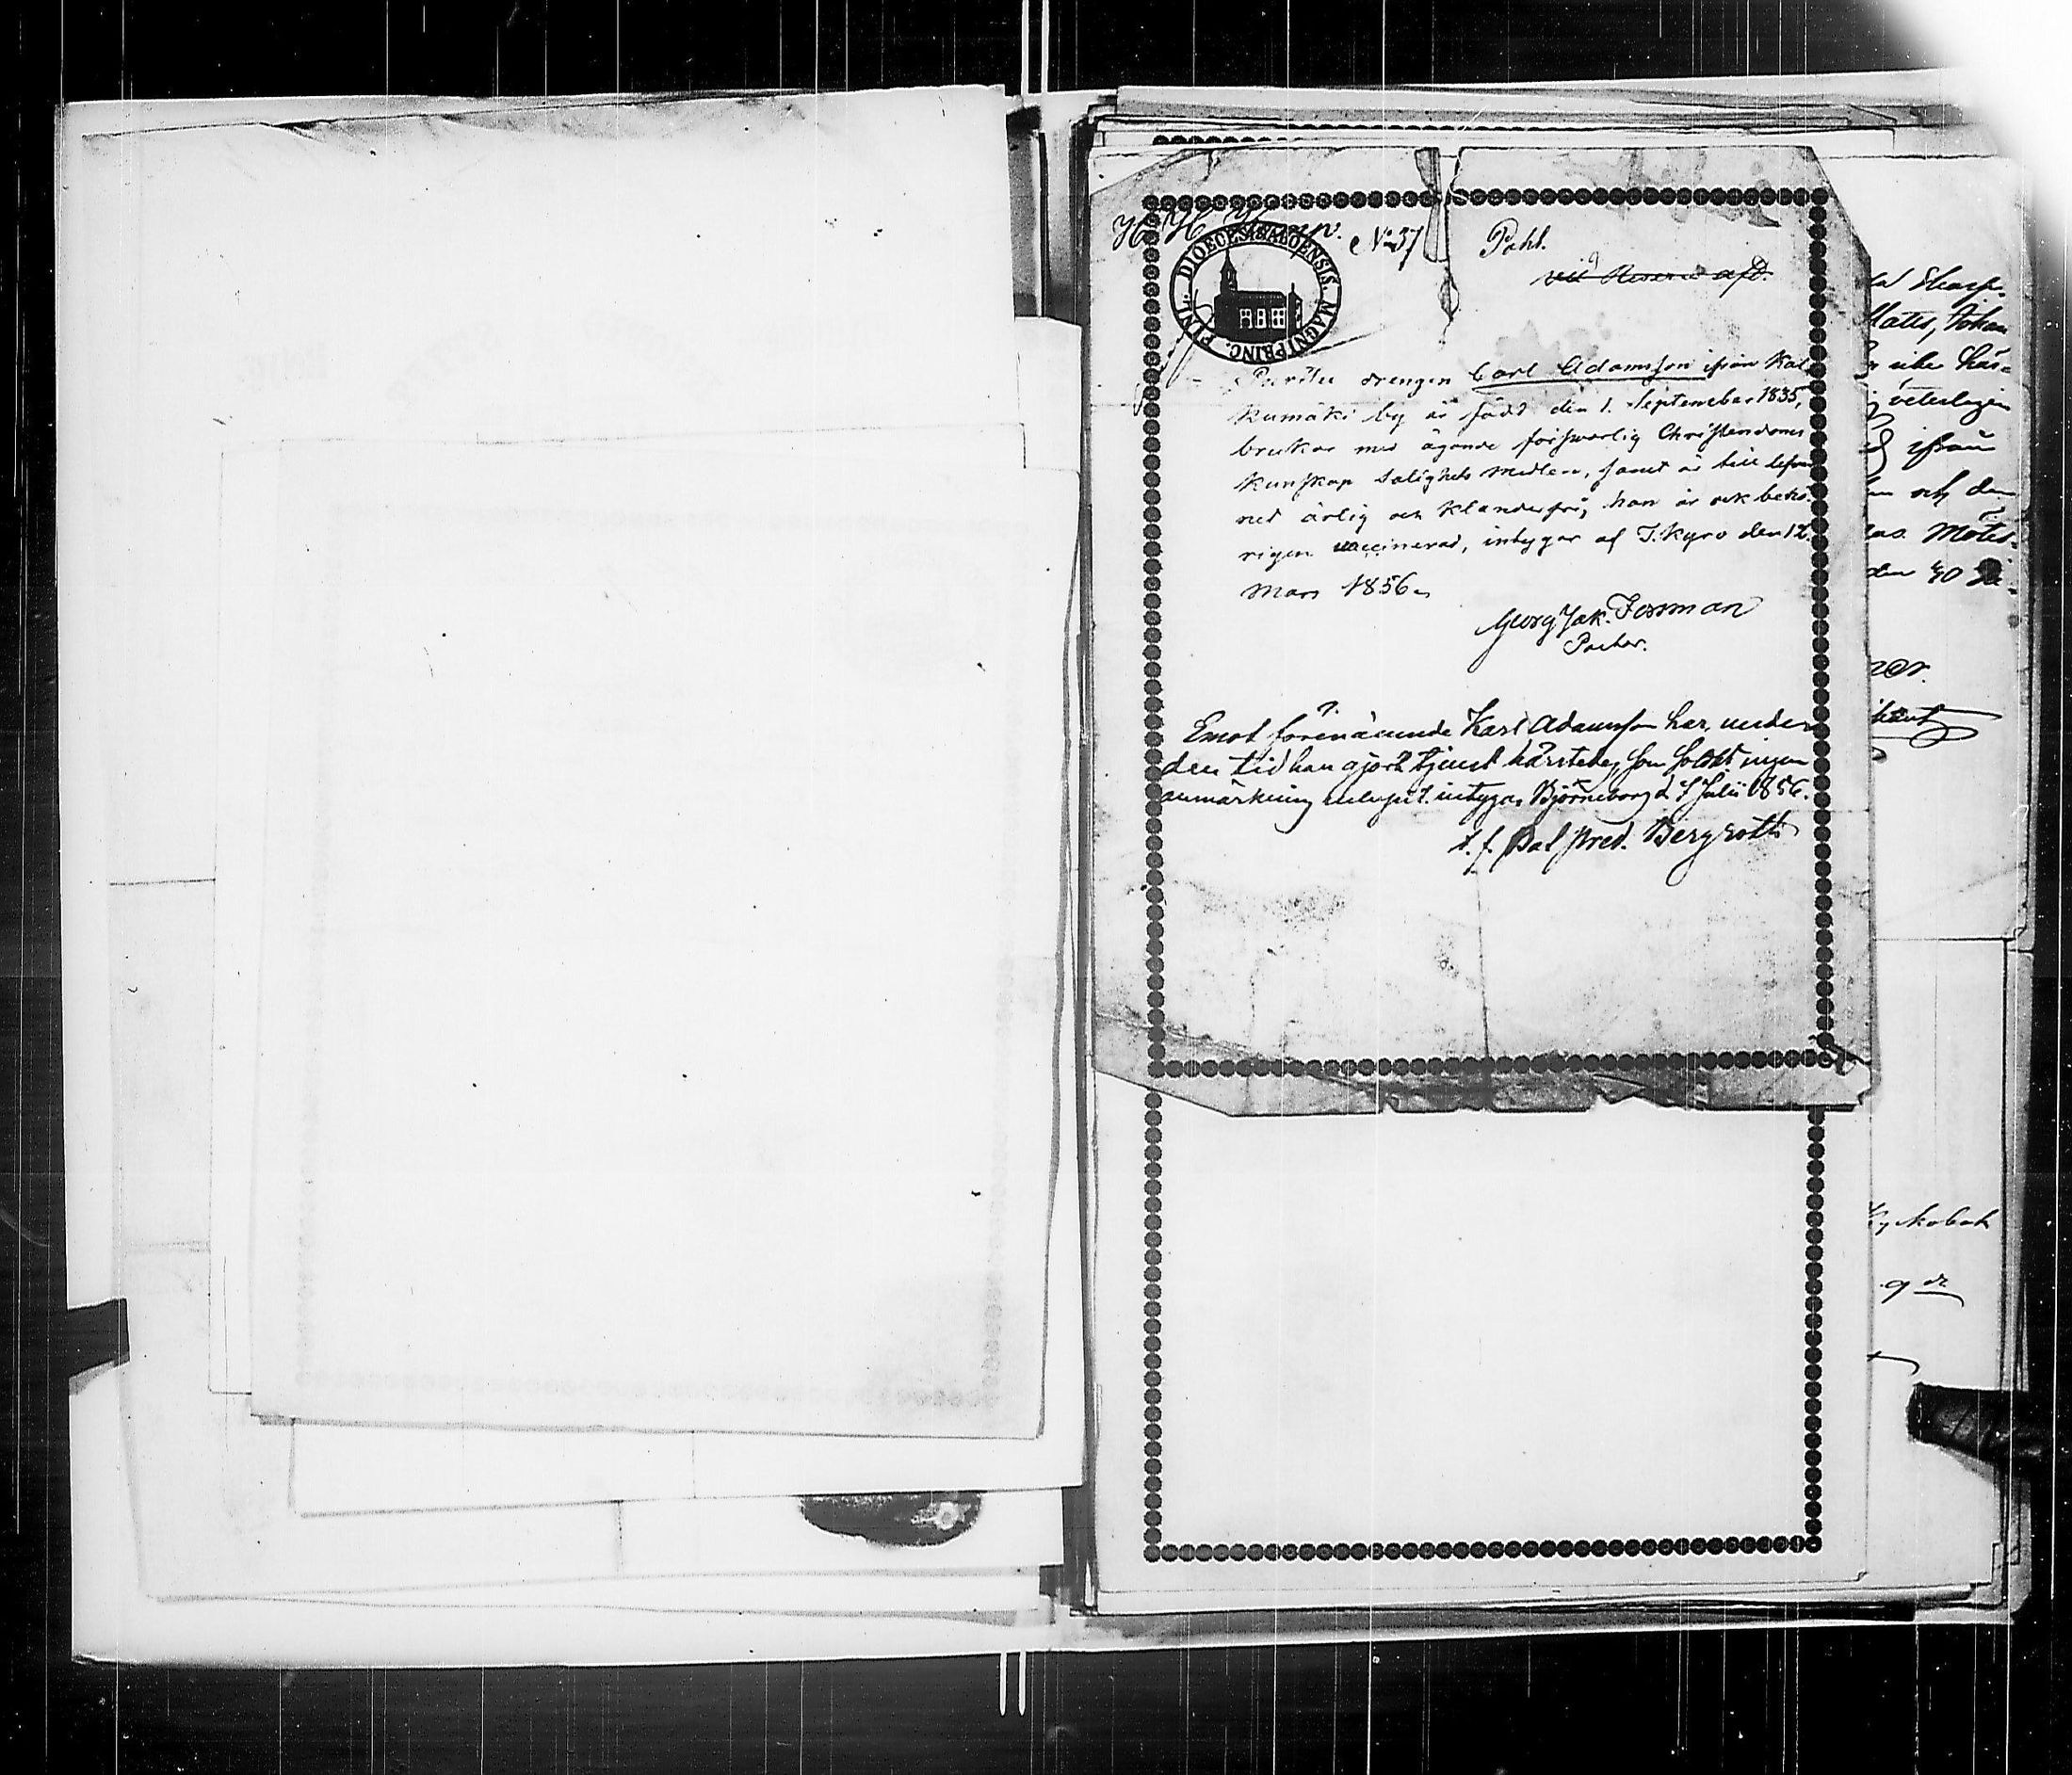 H H Komp. No 37 Pohl.
vid Reserv afd.
DIOECES. ABOENSIS. MAGNI PRINC. FINL.
drengen Carl Adamsson ifrån Kal
kumäki by är född den 1. September 1835,
brukar med ägande förswarlig Christendoms
kunskap Salighets medlen, samt är till lefver
net ärlig och klanderfri; han är ock behö
rigen vaccinerad, intygar af I. Kyro den 12
Mars 1856.
Georg Jak. Forsman
Pastor.
Emot förenämnde Karl Adamsson har, under
den tid han gjort tjenst härstedes som soldat ingen
anmärkning intygas Björneborg d. 7 Julii 1856.
t. f. Bat. pred. Bergroth
Mats, Johan
ifrån
och den
Mötes
den 40
9 de